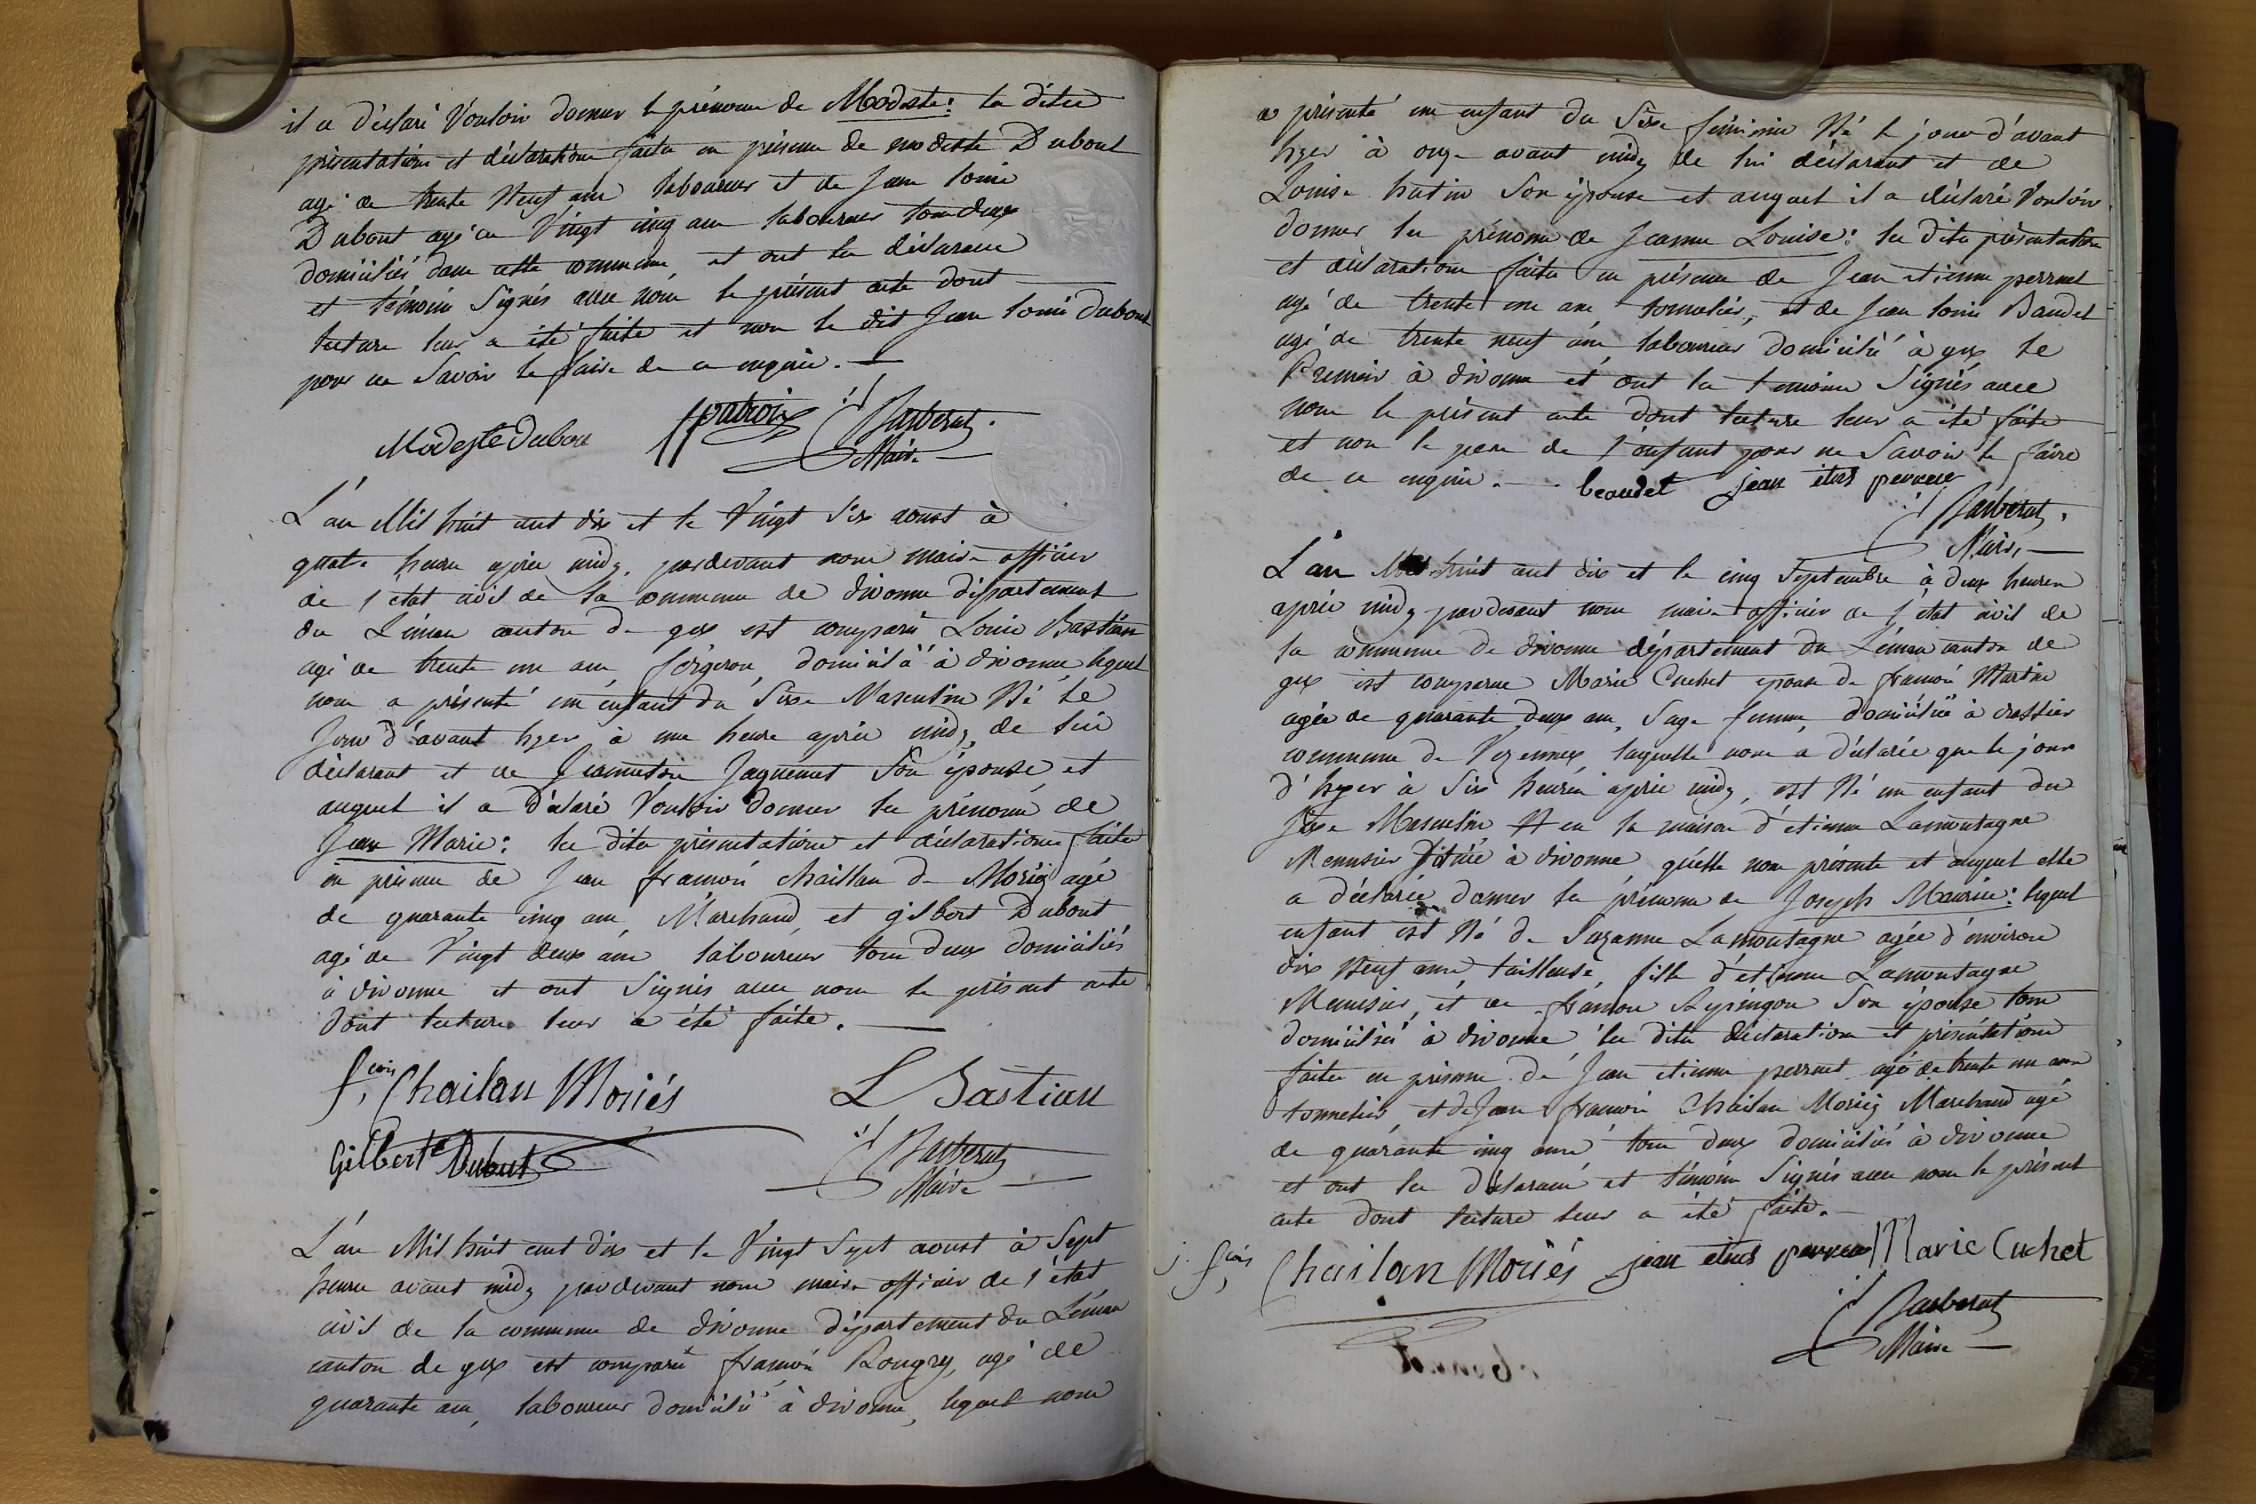 il a déclaré Vouloir donner le prénom de Modeste: la ditte
présentation et déclaration faite en présence de modeste Dubout
agé de trente Neuf ans laboureur et de Jean louis
Dubout agé de Vingt cinq ans laboureur tous deux
domiciliés dans cette commune et ont les déclarant
et témoins Signés avec nous le présent acte dont
lecture leur a été faite et non le dit Jean louis Dubout
pour ne Savoir le faire de ce enquis. —
Modeste Dubou
Barberat
Maire
L'an Mil huit cent dix et le Vingt Six aoust à
quatre heures après midy, pardevant nous maire officier
de l'etat civil de la commune de divonne département
du Léman canton de gex est comparu Louis Bastian
agé de trente un ans, forgeron, domicilié à divonne, lequel
nous a présenté un enfant du Sexe Masculin Né le
Jour d'avant hyer à une heure après midy, de lui
déclarant et de Jeannetoine Jaquemet Son épouse, et
auquel il a déclaré Vouloir donner les prénoms de
Jean Marie: les dites présentation et déclaration faite
en présence de Jean françois Chaillan de Moriéz agé
de quarante cinq ans, Marchand, et gilbert Dubout
agé de Vingt deux ans laboureur tous deux domiciliés
à divonne et ont Signés avec nous le présent acte
dont lecture leur a été faite. —
f.çois Chailan Moriés L Bastian
Gilberte Dubout Barberat
Maire
L'an Mil huit cent dix et le Vingt Sept aoust à Sept
heures avant midy pardevant nous maire officier de l'état
civil de la commune de divonne département du Léman
canton de gex est comparu françois Rougey, agé de
quarante ans, laboureur domicilié à divonne, lequel nous
a présenté un enfant du Sexe féminin Né le jour d'avant
hyer à onze avant midy de lui déclarant et de
Louise hutin Son épouse et auquel il a déclaré Vouloir
donner les prénoms de Jeanne Louise: les dites présentation
et déclaration faite en présence de Jean etienne perrnet
agé de trente un ans tonnelier, et de Jean louis Baudet
agé de trente neuf ans laboureur domicilié à gex le
Premier à divonne et ont les temoins Signés avec
nous le présent acte dont lecture leur a été faite
et non le pere de l'enfant pour ne Savoir le faire
de ce enquis. — beaudet jean etiens
Barberat
Maire
L'an Mil huit cent dix et le cinq Septembre à deux heures
après midy pardevant nous maire officier de l'état civil de
la commune de divonne département du Léman canton de
gex est comparue Marie Cuchet épouse de françois Martin
agée de quarante deux ans, Sage femme, domiciliée à crassier
commune de Vezennex, laquelle nous a déclarée que le jour
d'hyer à Six heures après midy, est Né un enfant du
Sexe Masculin en la maison d'etienne Lamontagne
Menusier Située à divonne qu'elle nous présente et auquel elle
a déclarée donner les prénoms de Joseph Maurice: lequel
enfant est Né de Suzanne Lamontagne agée d'environ
dix Neuf ans tailleuse, fille d'etienne Lamontagne
Menusier, et de Son épouse tous
domiciliés à divonne, les dites déclaration et présentation
faites en présence de Jean etienne perrnet agé de trente un ans
tonnelier, et de Jean françois Chailan Moriéz Marchand agé
de quarante cinq ans tous deux domiciliés à divonne
et ont les déclarant et témoins Signés avec nous le présent
acte dont lecture leur a été faite. —
j. f.çois Chailan Moriés jean etiens Marie Cuchet
Barberat
Maire